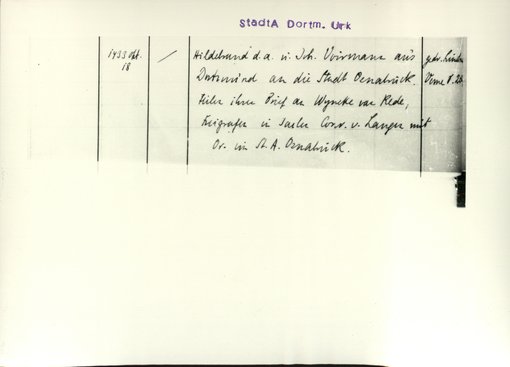 StadtA Dortm. Urk
1433 Okt.
18
Hildebrand d. a. u. Joh. Voirmann aus
Dortmund an die Stadt Osnabrück.
Teilen ihren Brief an Wyneke van Rede,
Freigrafen in Sachen Conr. v. Langen mit
Or. im St. A. Osnabrück.
gedr. Lindner
Veme